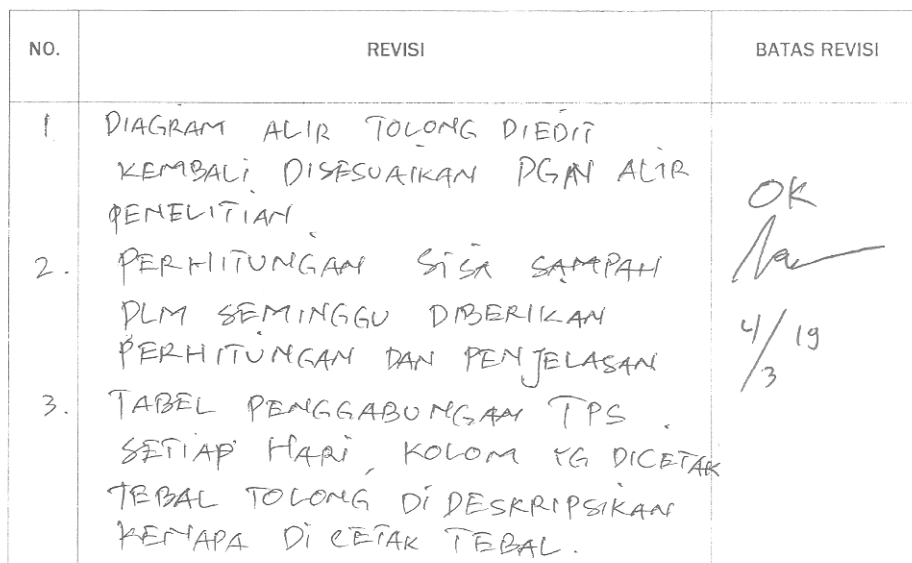 NO. REVISI BATAS REVISI
1 DIAGRAM ALIR TOLONG DIEDIT
KEMBALI DISESUAIKAN DGN ALIR
PENELITIAN
2. PERHITUNGAN SISA SAMPAH
DLM SEMINGGU DIBERIKAN
PERHITUNGAN DAN PENJELASAN
3. TABEL PENGGABUNGAN TPS.
SETIAP HARI, KOLOM YG DICETAK
TEBAL TOLONG DI DESKRIPSIKAN
KENAPA DI CETAK TEBAL.
OK
4/3 19